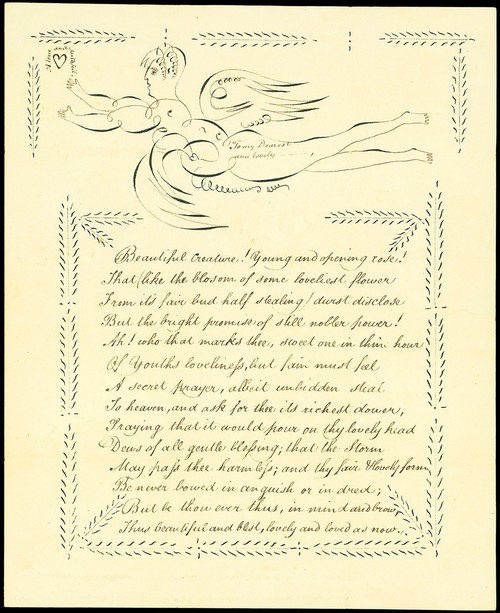 True and faithful
To my Dearest
and lovely
Beautiful creature! Young and opening rose!
That (like the blosom of some loveliest flower
From its fair bud half stealing) durst disclose
But the bright promise of still nobler power!
Ah! who that marks thee, sweet one in thin hour
Of Youths loveliness, but fain must feel
A secret prayer, albeit unbidden steal
To heaven, and ask for thee its richest dower,
Praying that it would pour on thy lovely head
Dews of all gentle blessing; that the Storm
May pass thee harmless; and thy fair & lovely form
Be never bowed in anguish or in dred;
But be thou ever thus, in mind and brow,
Thus beautiful and blest, lovely and loved as now.